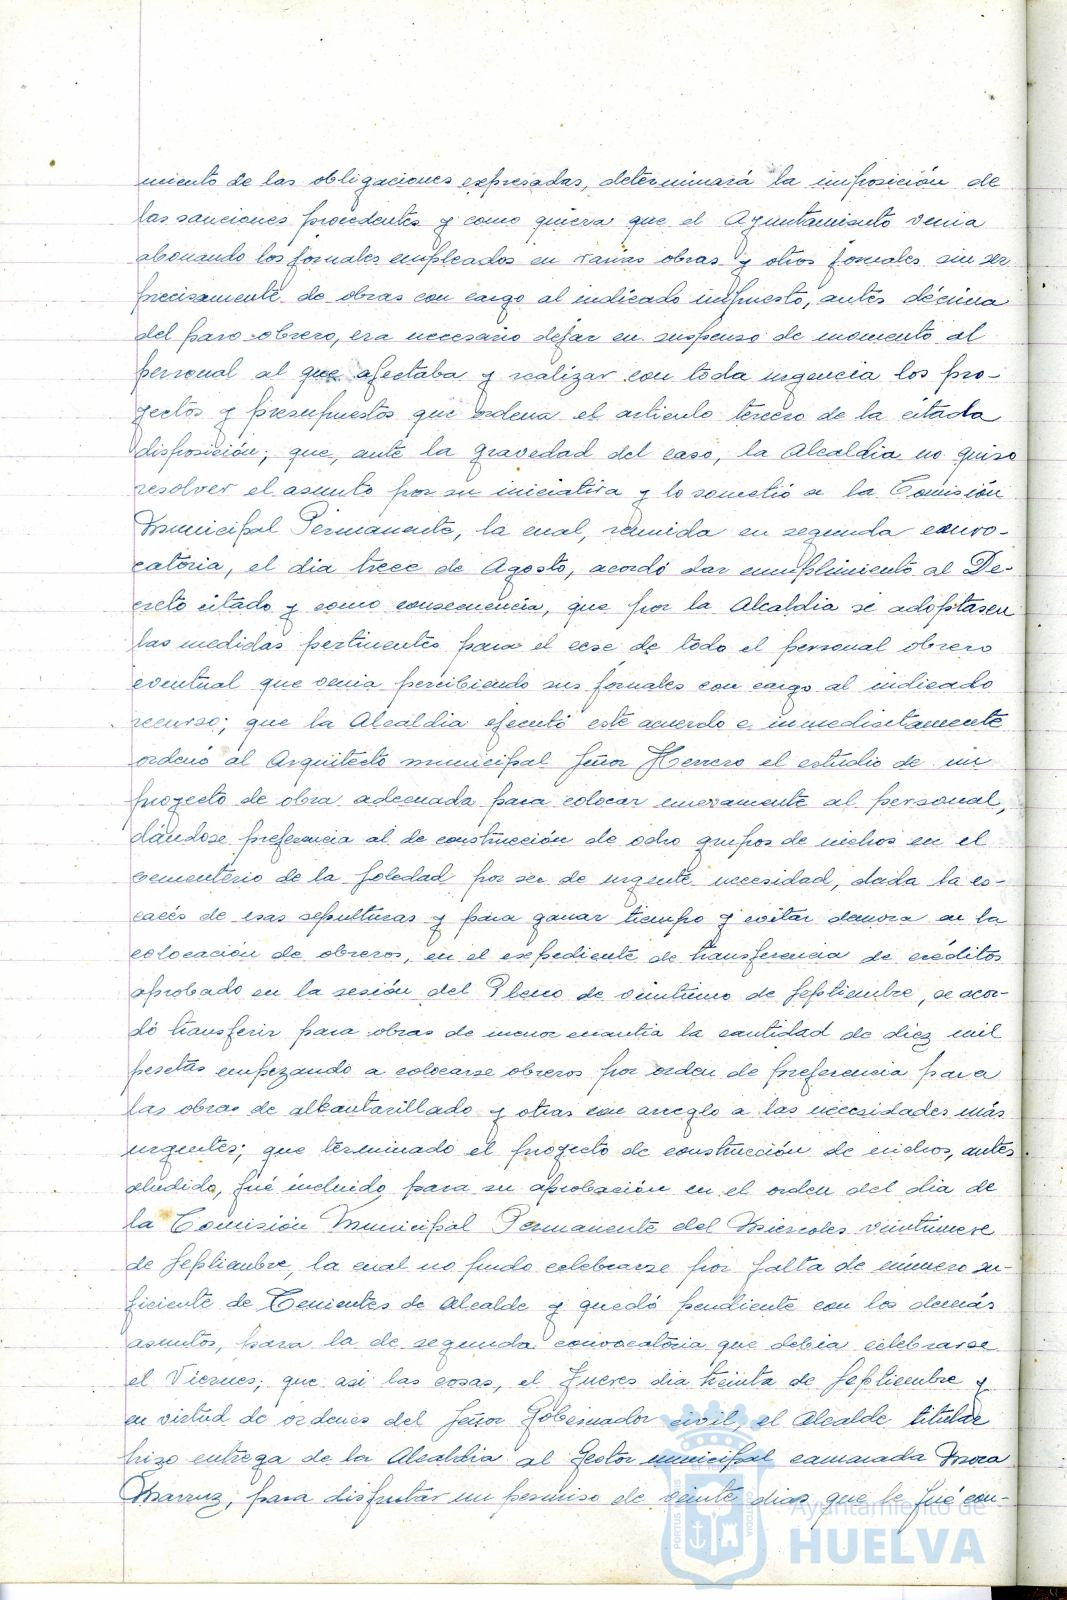 miento de las obligaciones expresadas, determinará la imposición de
las sanciones procedentes y como quiera que el Ayuntamiento venia
abonando los jornales empleados en varias obras y otros jornales sin ser
precisamente de obras con cargo al indicado impuesto, antes décima
del paro obrero, era necesario dejar en suspenso de momento al
personal al que afectaba y realizar con toda urgencia los pro-
yectos y presupuestos que ordena el articulo tercero de la citada
disposición; que, ante la gravedad del caso, la Alcaldia no quiso
resolver el asunto por su iniciativa y lo sometió a la Comisión
Municipal Permanente, la cual, reunida en segunda convo-
catoria, el dia trece de Agosto, acordó dar cumplimiento al De-
creto citado y como consecuencia, que por la Alcaldia se adoptasen
las medidas pertinentes para el cese de todo el personal obrero
eventual que venia percibiendo sus jornales con cargo al indicado
recurso; que la Alcaldia ejecutó este acuerdo e inmediatamente
ordenó al Arquitecto municipal Señor Herrero el estudio de un
proyecto de obra adecuada para colocar nuevamente al personal,
dándose preferencia al de construcción de ocho grupos de nichos en el
cementerio de la Soledad por ser de urgente necesidad, dada la es-
casés de esas sepulturas y para ganar tiempo y evitar demora en la
colocación de obreros, en el expediente de transferencia de créditos
aprobado en la sesión del Pleno de veintiuno de Septiembre, se acor-
dó transferir para obras de menor cuantia la cantidad de diez mil
pesetas empezando a colocarse obreros por orden de preferencia para
las obras de alcantarillado y otras con arreglo a las necesidades más
urgentes; que terminado el proyecto de construcción de nichos, antes
aludido, fué incluido para su aprobación en el orden del dia de
la Comisión Municipal Permanente del Miercoles veintinueve
de Septiembre, la cual no pudo celebrarse por falta de número su-
ficiente de Tenientes de Alcalde y quedó pendiente con los demás
asuntos, para la de segunda convocatoria que debia celebrarse
el Viernes; que asi las cosas, el Jueves dia treinta de Septiembre y
en virtud de órdenes del Señor Gobernador civil, el Alcalde titular
hizo entrega de la Alcaldia al Gestor municipal camarada Mora
Marruz, para disfrutar un permiso de veinte dias que le fué con-
PORTUS MARIS ET TERRAE CUSTODIA
Ayuntamiento de
HUELVA